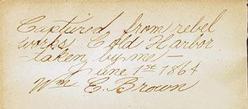 Captured from rebel
works Cold Harbor
taken by me —
June 1st 1864
Wm E. Brown